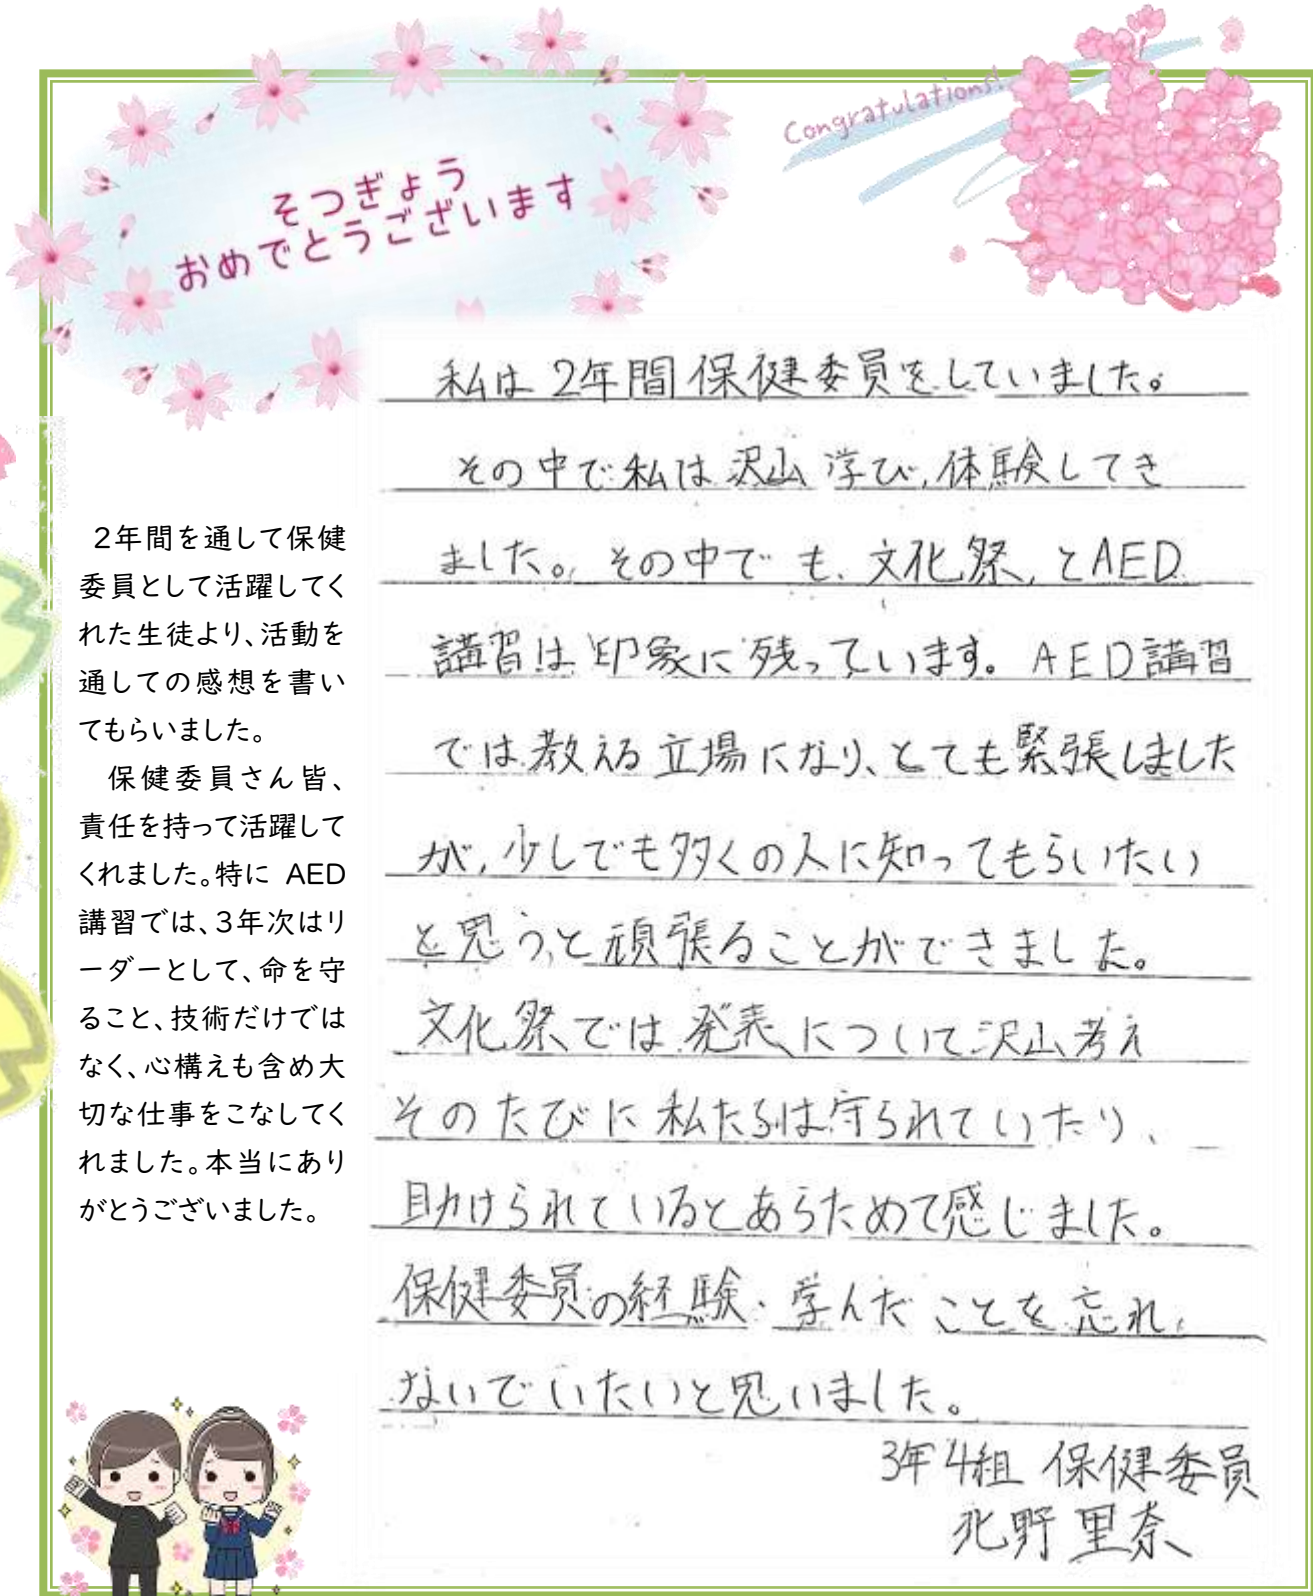 そつぎょう
おめでとうございます
Congratulations!
2年間を通して保健
委員として活躍してく
れた生徒より、活動を
通しての感想を書い
てもらいました。
保健委員さん皆、
責任を持って活躍して
くれました。特に AED
講習では、3年次はリ
ーダーとして、命を守
ること、技術だけでは
なく、心構えも含め大
切な仕事をこなしてく
れました。本当にあり
がとうございました。
私は2年間保健委員をしていました。
その中で私は沢山学び、体験してき
ました。その中でも、文化祭、とAED
講習は印象に残っています。AED講習
では教える立場になり、とても緊張しました
が、少しでも多くの人に知ってもらいたい
と思うと頑張ることができました。
文化祭では発表について沢山考え
そのたびに私たちは守られていたり、
助けられているとあらためて感じました。
保健委員の経験・学んだことを忘れ
ないでいたいと思いました。
3年4組 保健委員
北野里奈